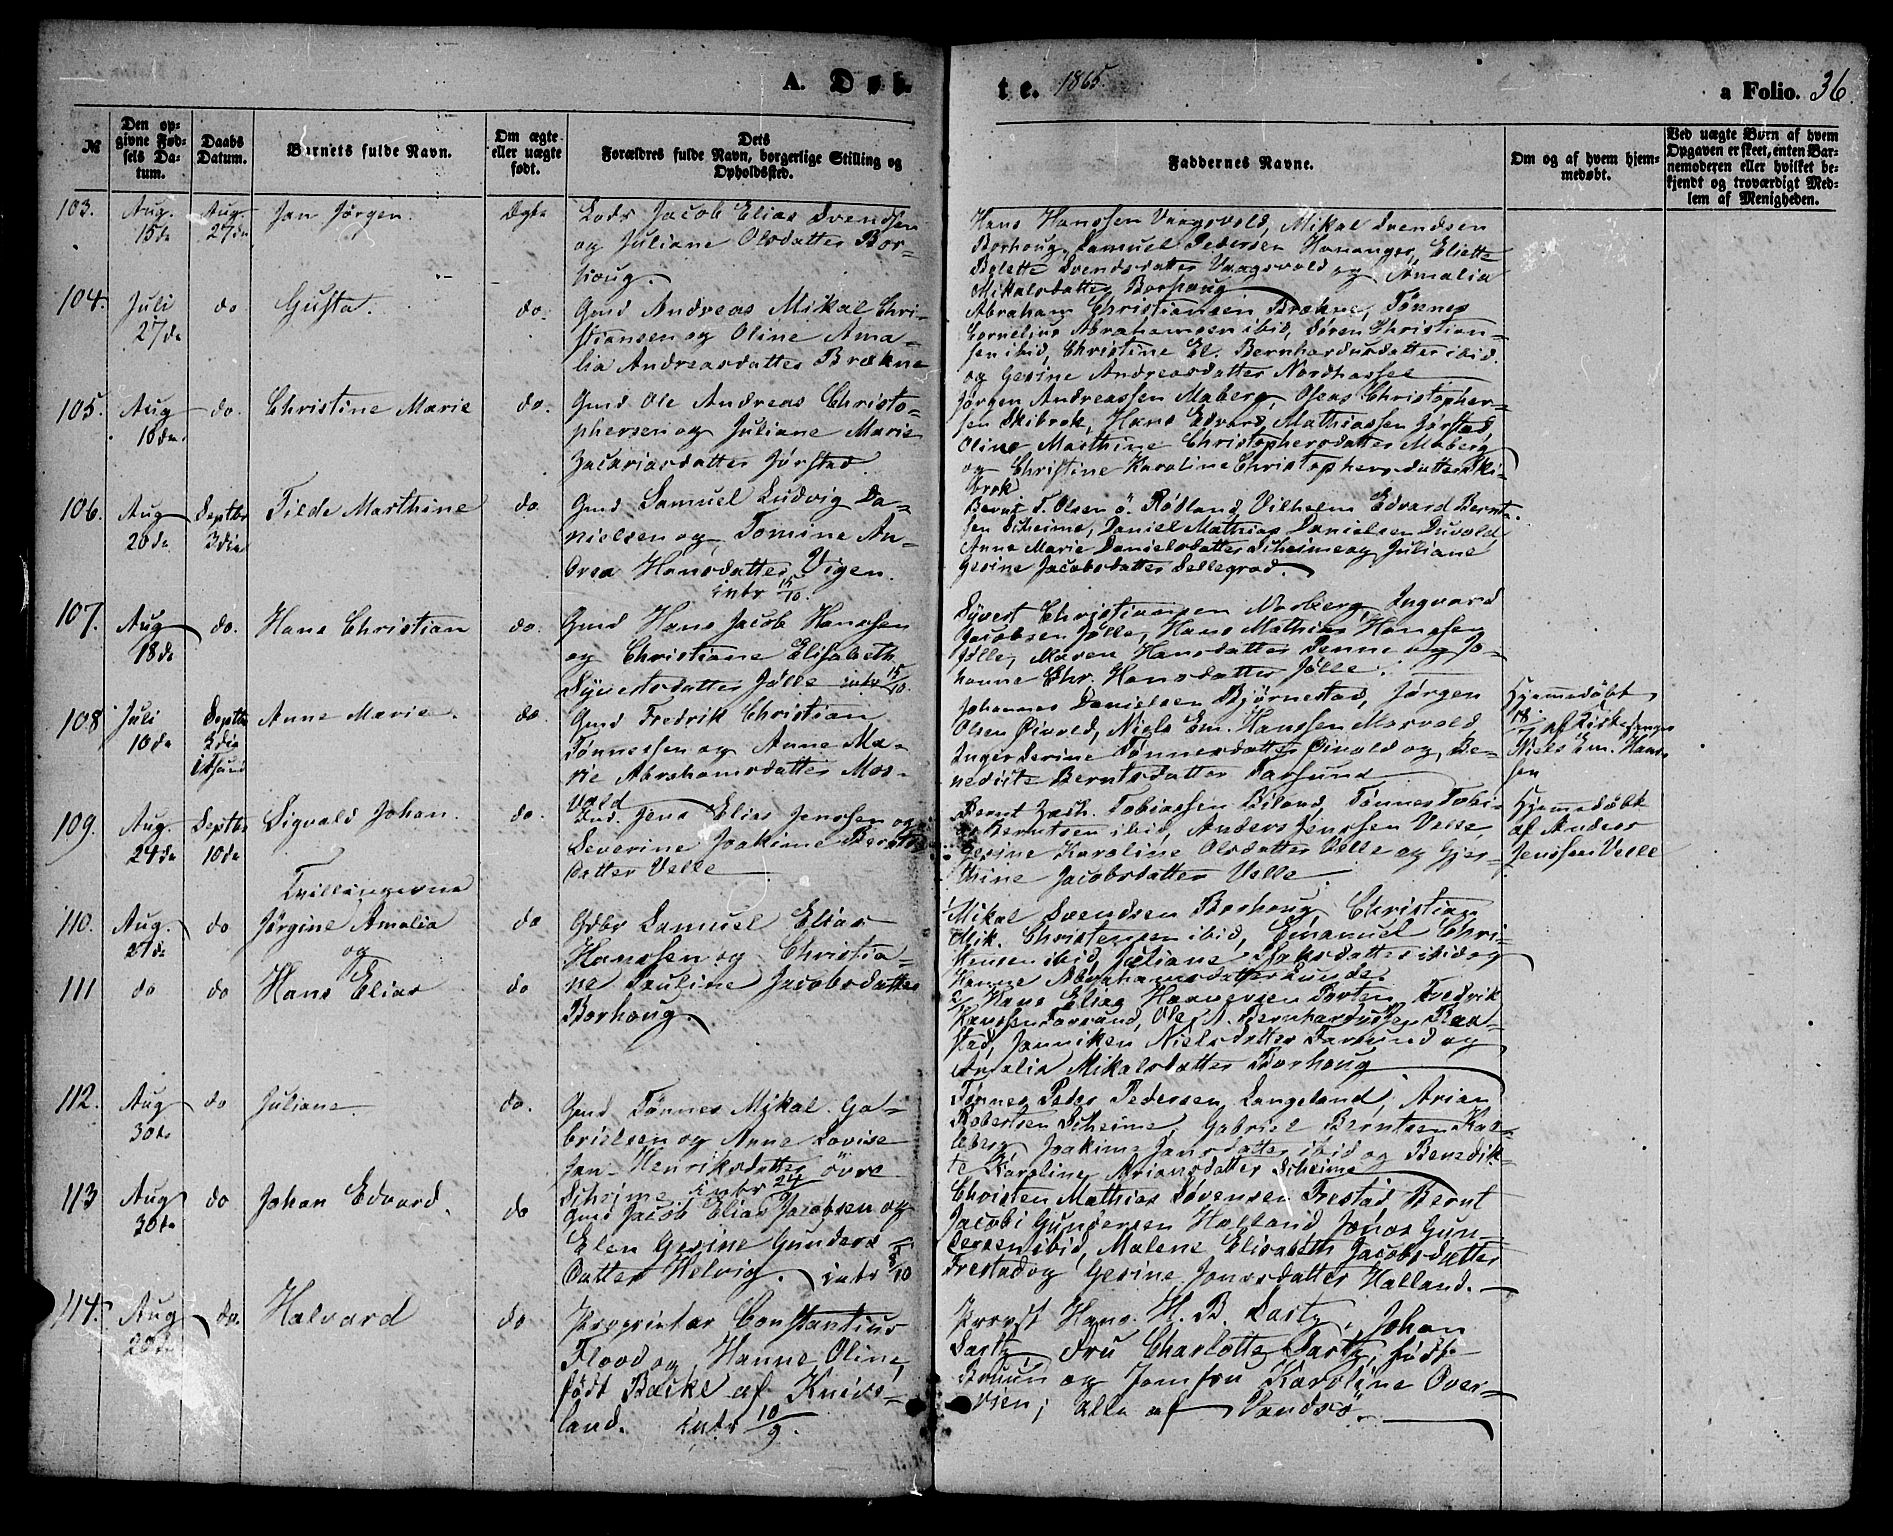 A. Døb-
te. 1865.
a Folio. 36.
№
Den op-
givne Fød-
sels Da-
tum.
Daabs
Datum.
Barnets fulde Navn.
Om ægte
eller uægte
født.
Dets
Forældres fulde Navn, borgerlige Stilling og
Opholdssted.
Faddernes Navne.
Om og af hvem hjem-
medøbt.
Ved uægte Børn af hvem
Opgaven er skeet, enten Bar-
nemoderen eller hvilket be-
kjendt og troværdigt Med-
lem af Menigheden.
103.
Aug.
15de
Aug.
27de
Jan Jørgen.
Ægte
Lods Jacob Elias Svendsen
og Juliane Olsdatter Bor-
houg.
Hans Hanssen Vaagsvold, Mikal Svendsen
Borhoug, Samuel Pedersen Hananger, Eliette
Belette Svendsdatter Vaagsvold og Amalia
Mikalsdatter Borhoug
104.
Juli
27de
do
Gusta.
do.
Gmd Andreas Mikal Chri-
stiansen og Oline Ama-
lia Andreasdatter Brækne
Abraham Christiansen Brækne, Tønnes
Cornelius Abrahamsen ibid, Søren Christian-
sen ibid, Christine El. Bernhardusdatter ibid.
og Gesine Andreasdatter Nordhassel
105.
Aug
10de
do.
Christine Marie
do.
Gmd. Ole Andreas Christo-
phersen og Juliane Marie
Zacariasdatter Jørstad.
Jørgen Andreassen Maberg, Oseas Christopher-
sen Skibrok, Hans Edvard Mathiassen Jørstad
Oline Marthine Christophersdatter Maberg
og Christine Karoline Christophersdatter Ski-
brok
106.
Aug
20de
Septbr
3die
Tilde Marthine
do.
Gmd Samuel Ludvig Da-
nielsen og Tomine An-
drea Hansdatter Vigen.
intr 15/10.
Bernt T. Olsen ö. Rödland, Vilhelm Edvard Bernt-
sen Scheime, Daniel Mathias Danielsen
Anne Marie Danielsdatter Scheime og Juliane
Gesine Jacobsdatter Sellegrod.
107.
Aug
18de
do.
Hans Christian
do.
Gmd Hans Jacob Hanssen
og Christiane Elisabeth
Syvertsdatter Jølle intr 15/10
Syvert Christiansen Ingvard
Jacobsen Jølle, Hans Mathias Hanssen
Jølle, Maren Hansdatter Penne og Jo-
hanne Chr. Hansdatter Jølle.
108
Juli
10de
Septbr
3die
i Farsund
Anne Marie.
do.
Gmd Fredrik Christian
Tønnessen og Anne Ma-
rie Abrahamsdatter Mos-
vold
Johannes Danielsen Bjørnestad, Jørgen
Olsen Øivold, Niels Em. Hanssen Mosvold
Inger Serine Tønnesdatter Øivold og Be-
nedicte Berntsdatter Farsund
Hjemmedøbt
af Kirkesanger
Niels Em. Hans-
sen
109.
Aug.
24de
Septbr
10de
Sigvald Johan.
do.
Gmd. Jens Elias Jenssen og
Severine Joakime Bernts-
datter Velle
Bernt Zach. Tobiassen Biland, Tønnes Tobi-
Berntsen ibid, Anders Jenssen Velle
Gesine Karoline Olsdatter Velle og Gjer-
thine Jacobsdatter Velle.
Hjemmedøbt
af Anders
Jenssen Velle
Tvillingerne
110.
Aug.
21de
do
Jørgine Amalia
og
do
Gdbr Samuel Elias
Hanssen og Christia-
ne Pauline Jacobsdatter
Borhoug.
Mikal Svendsen Borhoug, Christian
Mik. Christensen ibid, Emanuel Chri-
stensen ibid, Juliane Isaksdatter ibid og
Hanne Abrahamsdatter Lunde.
111
do
do
Hans Elias
do
Hans Elias Hansen Forten, Fredrik
Hanssen Farsund, Ole A. Bernhardussen
stad, Janniken Nielsdatter Farsund og
Amalia Mikalsdatter Borhoug
112.
Aug
30te
do
Juliane.
do.
Gmd Tønnes Mikal Ga-
brielsen og Anne Lovise
Jan-Henriksdatter övre
Scheime intr 24
Tønnes Peder Pedersen Langeland, Arian
Robertsen Scheime, Gabriel Berntsen Kal-
leberg Joakime Jansdatter ibid og Benedik-
te Karoline Ariansdatter Scheime
113
Aug
30te
do
Johan Edvard.
do
Gmd Jacob Elias Jacobsen og
Elen Gesine Gunders
datter Helvig. intr 8/10
Christen Mathias Sørensen Frestad, Bernt
Jacobi Gundersen Halland, Jonas Gun-
dersen ibid, Malene Elisabeth Jacobsdatter
Frestad og Gesine Jonasdatter Halland.
114.
Aug
20de
do.
Halvard
do
Proprietær Constantius
Flood og Hanne Oline,
født Bække af Kniks-
land. Intr 10/9.
Provst Hans H. B. Sartz, Johan
Sartz, Fru Charlotte Sartz, født
Bruun og Jomfru Karoline Over-
vien; Alle af Vandsö.